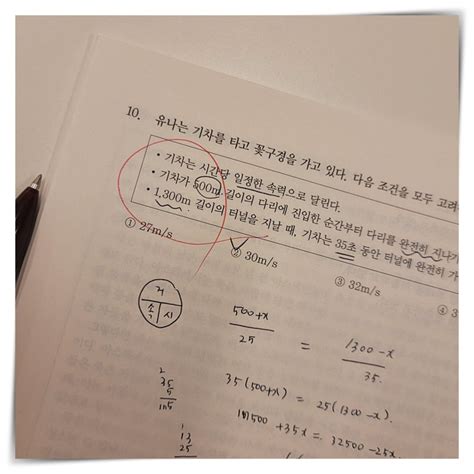 10. 유나는 기차를 타고 꽃구경을 가고 있다. 다음 조건을 모두 고려
• 기차는 시간당 일정한 속력으로 달린다.
• 기차가 500m 길이의 다리에 진입한 순간부터 다리를 완전히 지나기
• 1,300m 길이의 터널을 지날 때, 기차는 35초 동안 터널에 완전히 가
① 27m/s ② 30m/s ③ 32m/s ④ 3
거
속 시
500+x / 25 = 1300-x / 35.
35(500+x) = 25(1300-x).
500 +35x = 32500-25x.
35
5
13
25